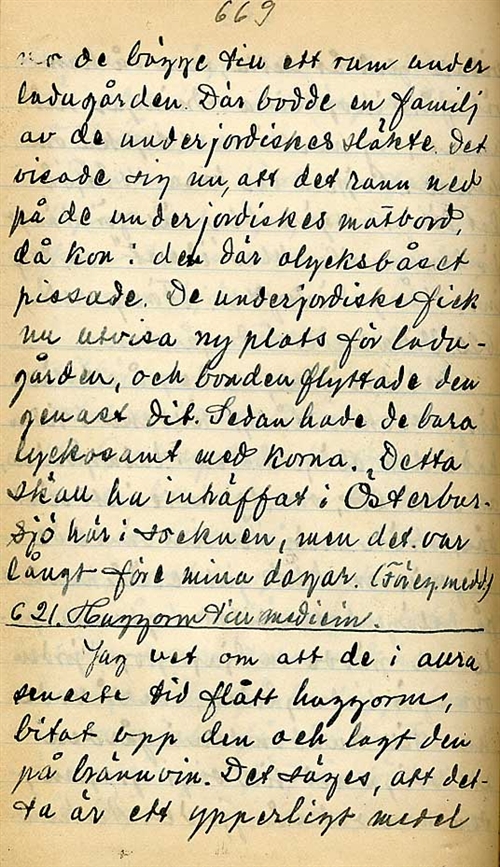 669
de bägge till ett rum under
ladugården. Där bodde en familj
av de underjordiskes släkte. Det
visade sig nu, att det rann ned
på de underjordiskes matbord,
då kon i den där olycksbåset
pissade. De underjordiske fick
nu utvisa ny plats för ladu-
gården, och bonden flyttade den
genast dit. Sedan hade de bara
lyckosamt med korna. "Detta
skall ha inträffat i Österbur-
sjö här i socknen, men det var
långt före mina dagar. (Föreg. medd.)
621. Huggorm till medicin.
Jag vet om att de i allra
senaste tid flått huggorm,
bitat upp den och lagt den
på brännvin. Det säges, att det-
ta är ett ypperligt medel